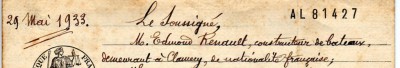 29 Mai 1933.
Le Soussigné,
AL81427
M. Edmond Renault, constructeur de bateaux,
demeurant à Clamecy, de nationalité française,